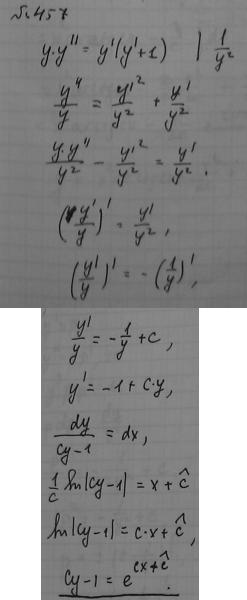 №457
y·y'' = y'(y'+1) | 1/y²
y''/y = y'²/y² + y'/y²
y·y''/y² - y'²/y² = y'/y².
(y'/y)' = y'/y²,
(y'/y)' = -(1/y)',
y'/y = -1/y + c,
y' = -1 + c·y,
dy/(cy-1) = dx,
1/c ln|cy-1| = x + ĉ
ln|cy-1| = c·x + ĉ,
cy-1 = e^(cx+ĉ).